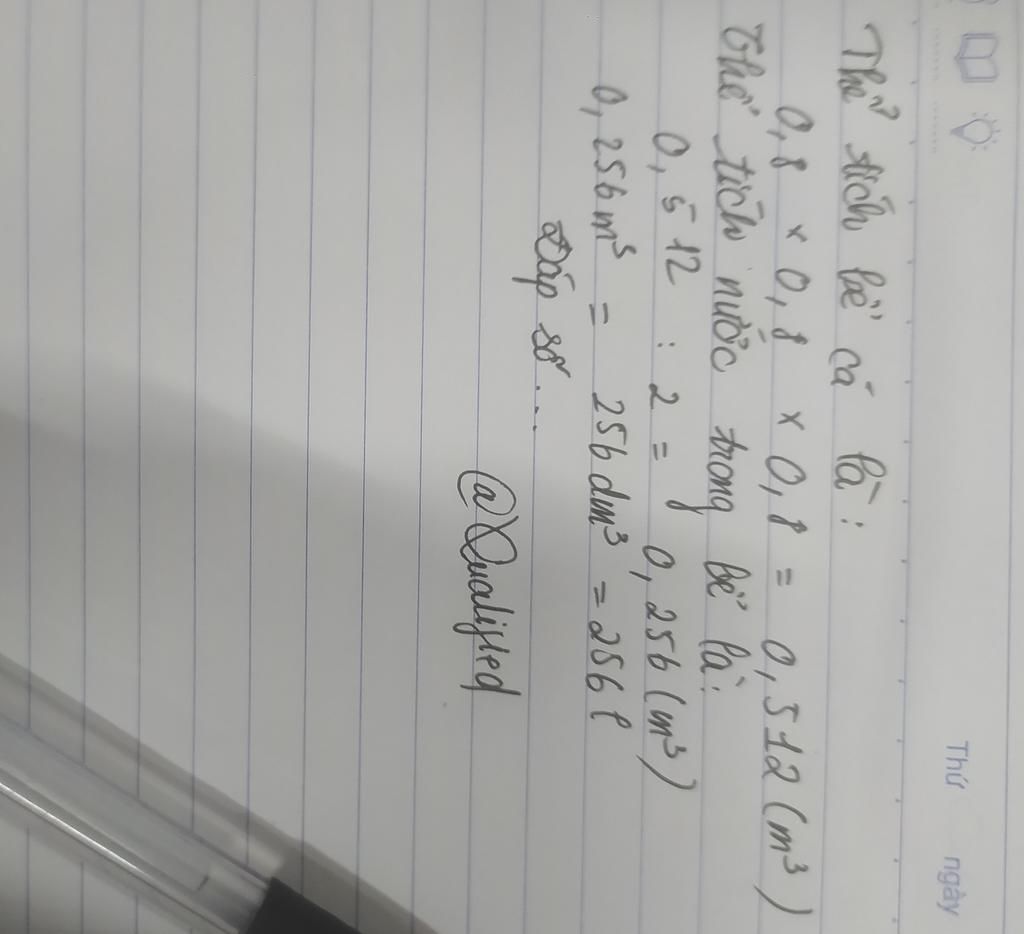 Thứ ngày
Thể tích bể cá là:
0,8 x 0,8 x 0,8 = 0,512 (m³)
Thể tích nước trong bể là:
0,512 : 2 = 0,256 (m³)
0,256 m³ = 256 dm³ = 256 l
Đáp số...
@Qualified